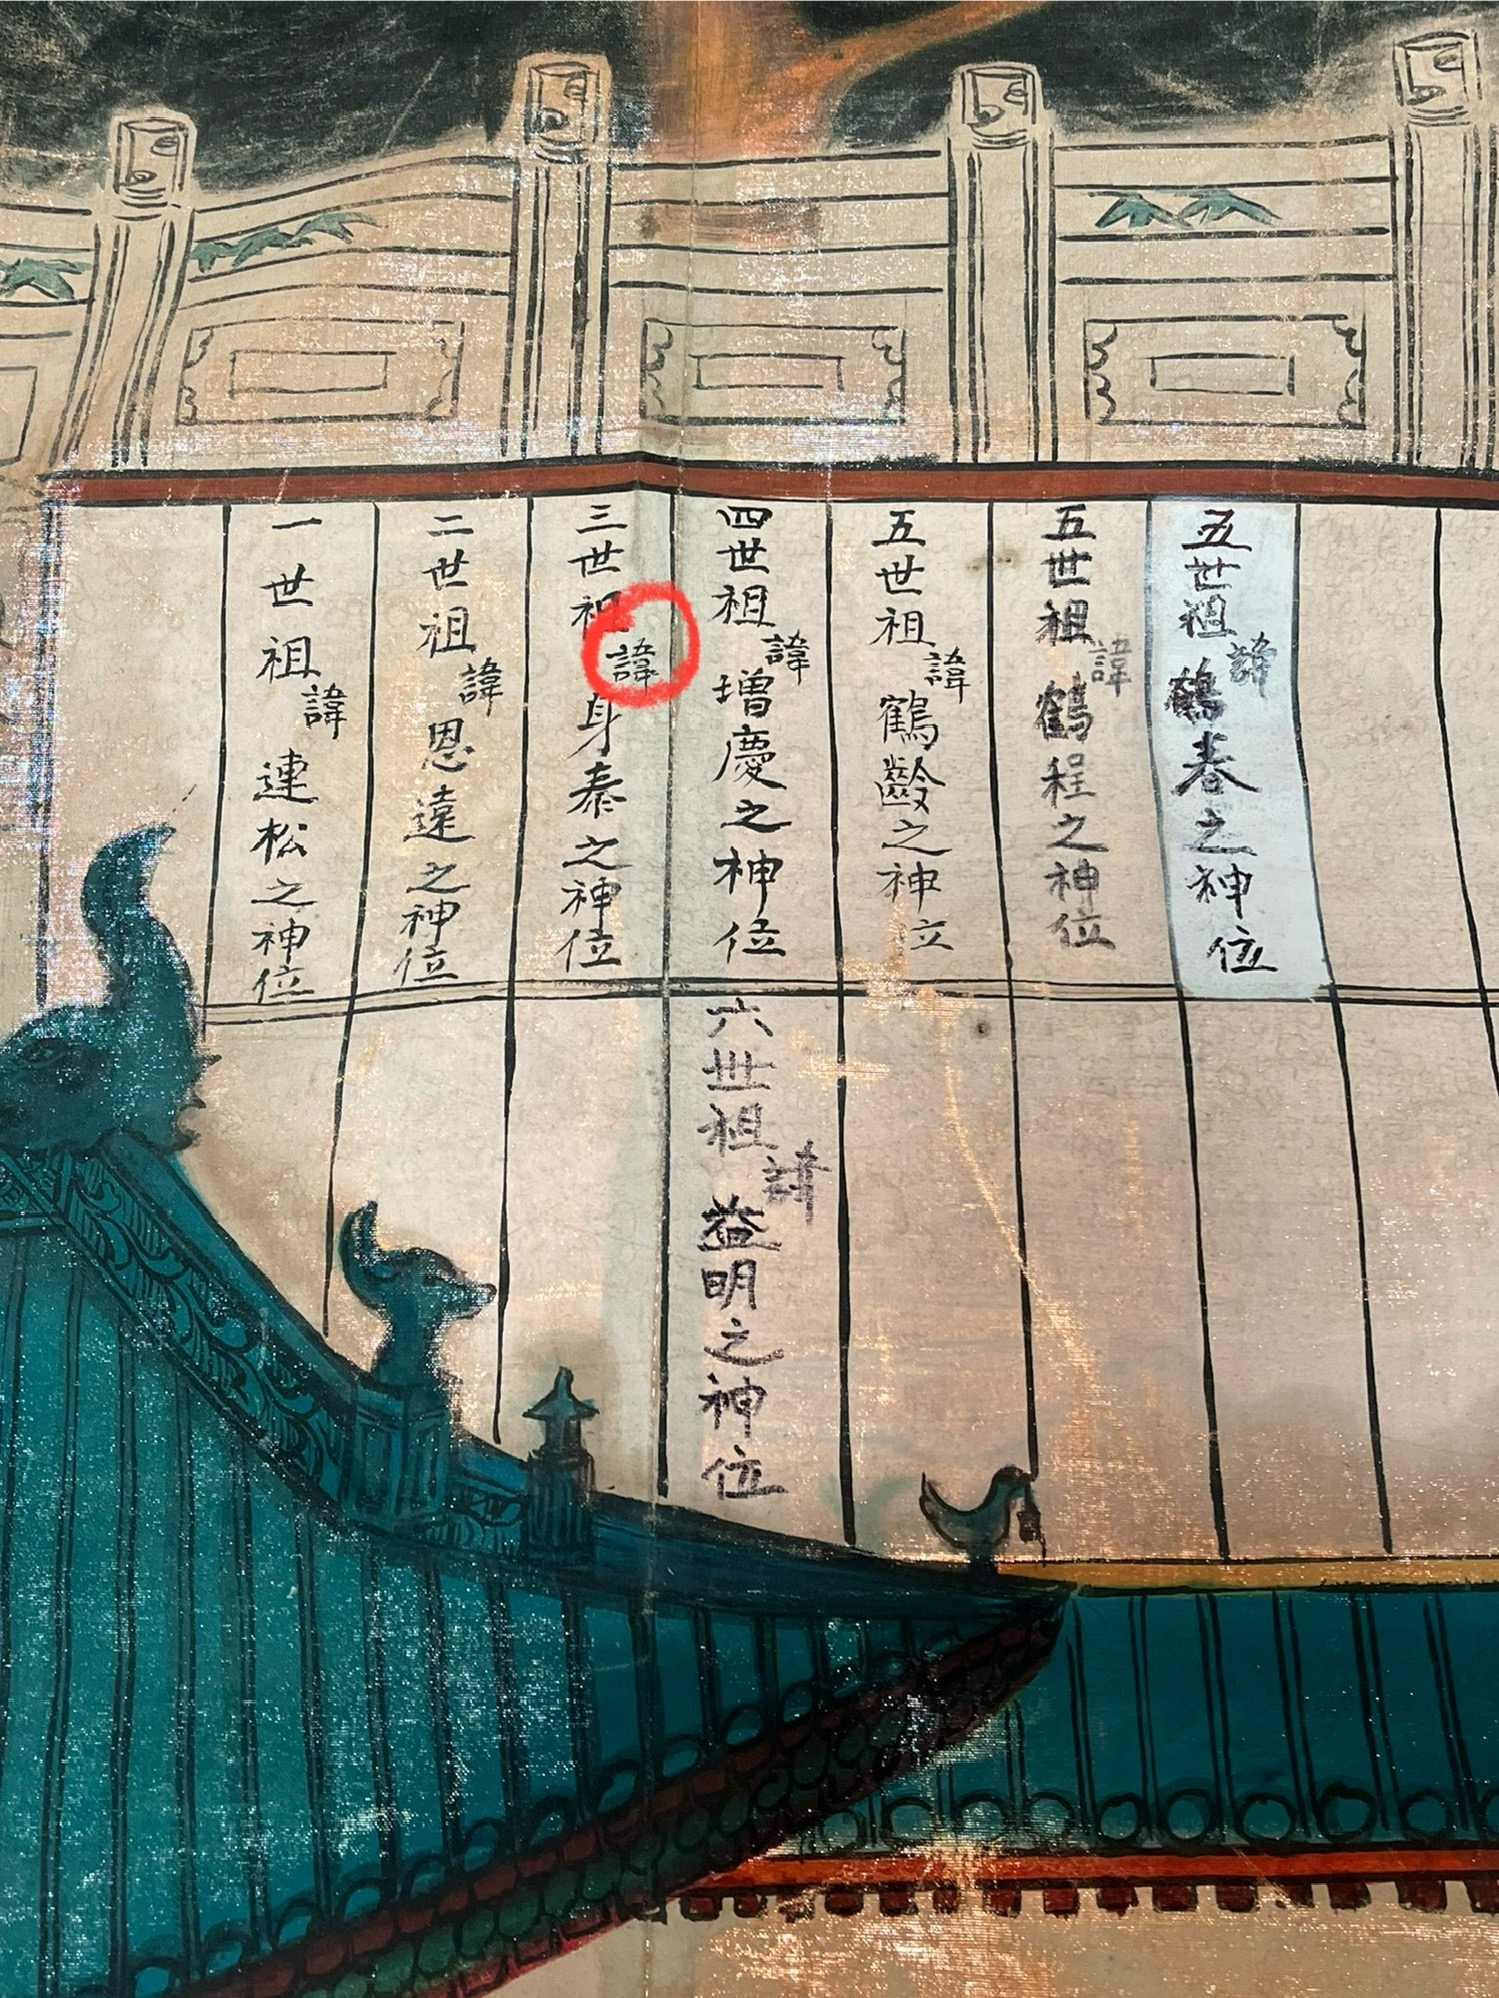 一世祖諱連松之神位
二世祖諱恩遠之神位
三世祖諱身泰之神位
四世祖諱增慶之神位
五世祖諱鶴齡之神位
五世祖諱鶴程之神位
五世祖諱鶴春之神位
六世祖諱益明之神位